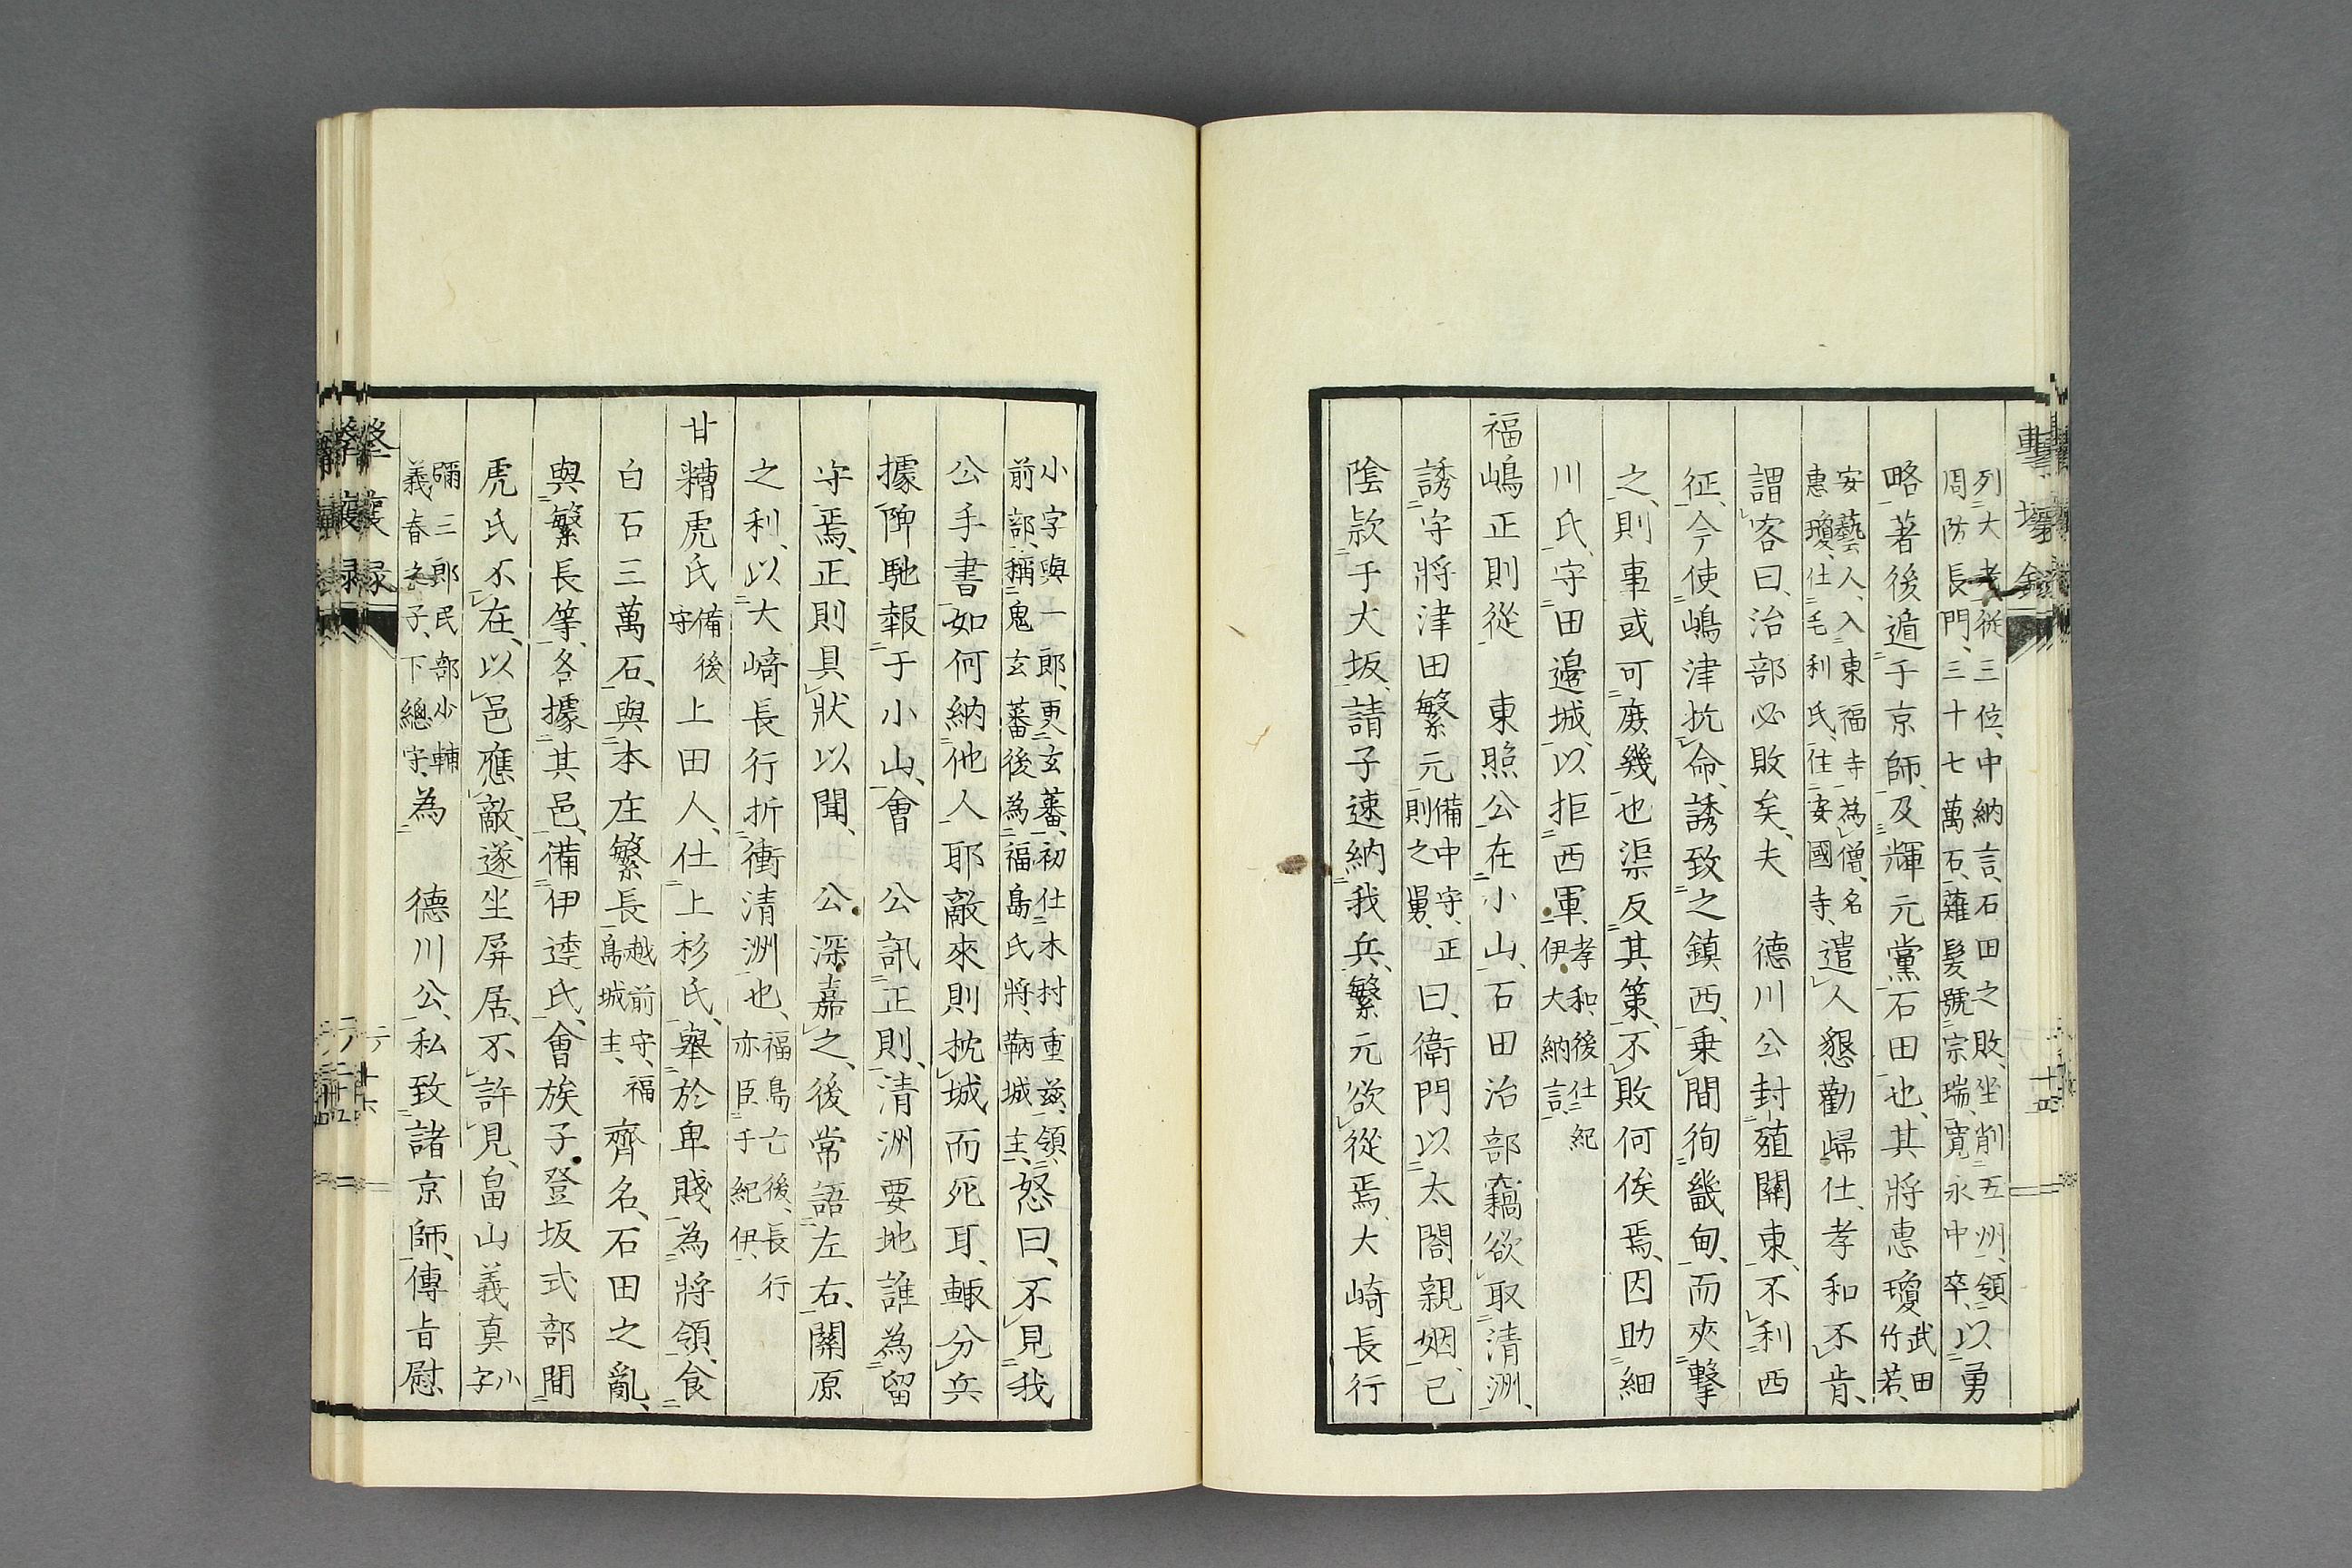 列大老從三位、中納言、石田之敗、坐削五州領、以勇
周防長門、三十七萬石、薙髮號宗瑞、寬永中卒、
略著後遁于京師、及輝元黨石田也、其將惠瓊武田
竹若、
安藝人、入東福寺為僧、名
惠瓊、仕毛利氏、住安國寺、遣人懇勸歸仕、孝和不肯、
謂客曰、治部必敗矣、夫 德川公封殖關東、不利西
征、今使嶋津抗命、誘致之鎮西、乗間徇畿甸、而夾擊
之、則事或可庶幾也渠反其策、不敗何俟焉、因助細
川氏、守田邊城、以拒西軍、孝和、後仕紀
伊大納言、
福嶋正則從 東照公在小山、石田治部竊欲取清洲、
誘守將津田繁元備中守、正
則之舅、曰、衛門以太閤親姻、已
陰欵于大坂、請子速納我兵、繁元欲從焉、大崎長行
小字與一郎、更玄蕃、初仕木村重茲、領
前部、稱鬼玄蕃後為福島氏將、鞆城主、怒曰、不見我
公手書如何納他人耶敵來則枕城而死耳、輙分兵
據陴馳報于小山、會 公訊正則、清洲要地誰為留
守焉、正則具狀以聞、 公深嘉之、後常語左右、關原
之利、以大﨑長行折衝清洲也、福島亡後、長行
亦臣于紀伊、
甘糟虎氏備後
守上田人、仕上杉氏、舉於卑賤為將領、食
白石三萬石、與本庄繁長越前守、福
島城主、齊名、石田之亂、
與繁長等、各據其邑、備伊逹氏、會族子登坂式部間
虎氏不在、以邑應敵、遂坐屏居、不許見、畠山義真小
字
彌三郎民部少輔
義春之子、下總守、為 德川公、私致諸京師、傳旨慰